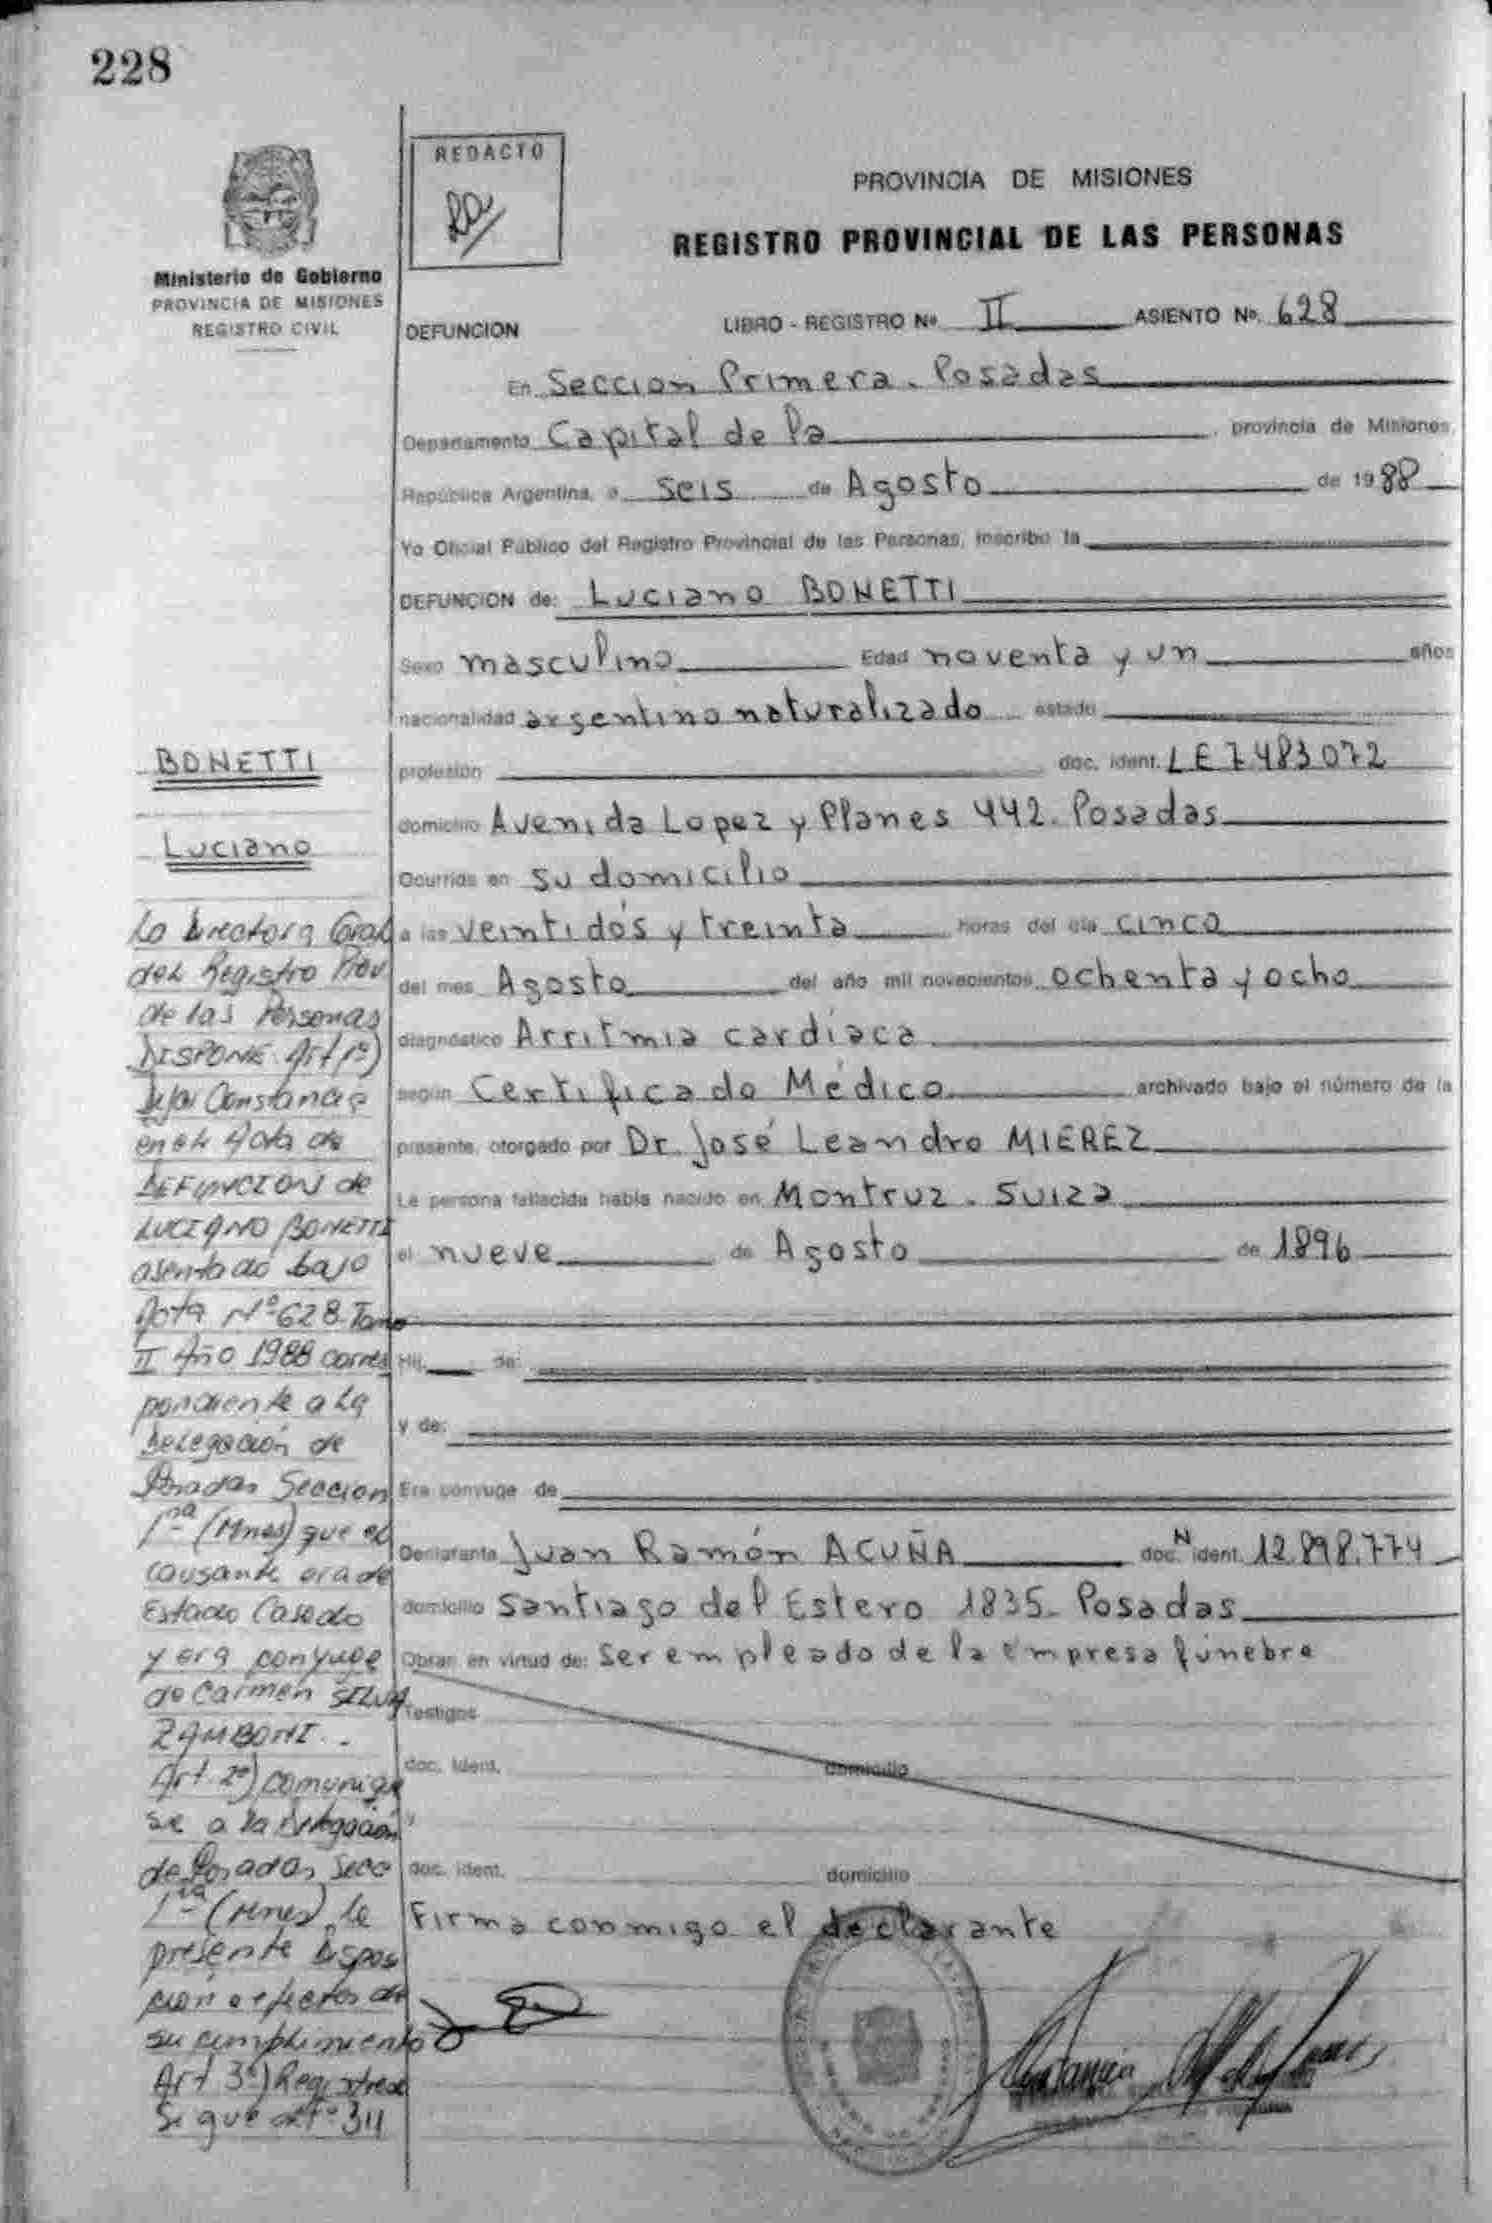 228
REDACTO
Ministerio de Gobierno
PROVINCIA DE MISIONES
REGISTRO CIVIL
PROVINCIA DE MISIONES
REGISTRO PROVINCIAL DE LAS PERSONAS
DEFUNCION LIBRO - REGISTRO Nº II ASIENTO Nº 628
En Seccion Primera. Posadas
Departamento Capital de la , provincia de Misiones,
República Argentina, a seis de Agosto de 1988
Yo Oficial Público del Registro Provincial de las Personas, inscribo la
DEFUNCION de: Luciano BONETTI
Sexo masculino Edad noventa y un años
nacionalidad argentino naturalizado estado
profesión doc. ident. LE 7.483.072
domicilio Avenida Lopez y Planes 442. Posadas
Ocurrida en su domicilio
a las veintidós y treinta horas del día cinco
del mes Agosto del año mil novecientos ochenta y ocho
diagnóstico Arritmia cardíaca
según Certificado Médico archivado bajo el número de la
presente, otorgado por Dr. José Leandro MIEREZ
La persona fallecida había nacido en Montruz. Suiza
el nueve de Agosto de 1896
Hij de:
y de:
Era conyuge de
Declarante Juan Ramón ACUÑA doc. N ident. 12.898.774
domicilio Santiago del Estero 1835. Posadas
Obran en virtud de: ser empleado de la empresa fúnebre
Testigos
doc. ident. domicilio
y
doc. ident. domicilio
Firma conmigo el declarante
BONETTI
Luciano
La Directora Gral
del Registro Prov
de las Personas
DISPONE Art 1º)
Deja Constancia
en el Acta de
DEFUNCION de
LUCIANO BONETTI
asentado bajo
Acta Nº 628 Tomo
II Año 1988 corres
pondiente a la
Delegación de
Posadas Seccion
1ra (Mnes) que el
causante era de
Estado Casado
y era conyuge
de Carmen SILVA
ZAMBONI..
Art. 2º) Comunique
se a la Delegación
de Posadas Secc
1ra (Mnes) la
presente Dispos
cion a efectos de
su cumplimiento
Art 3º) Registrese
Sigue acta 311